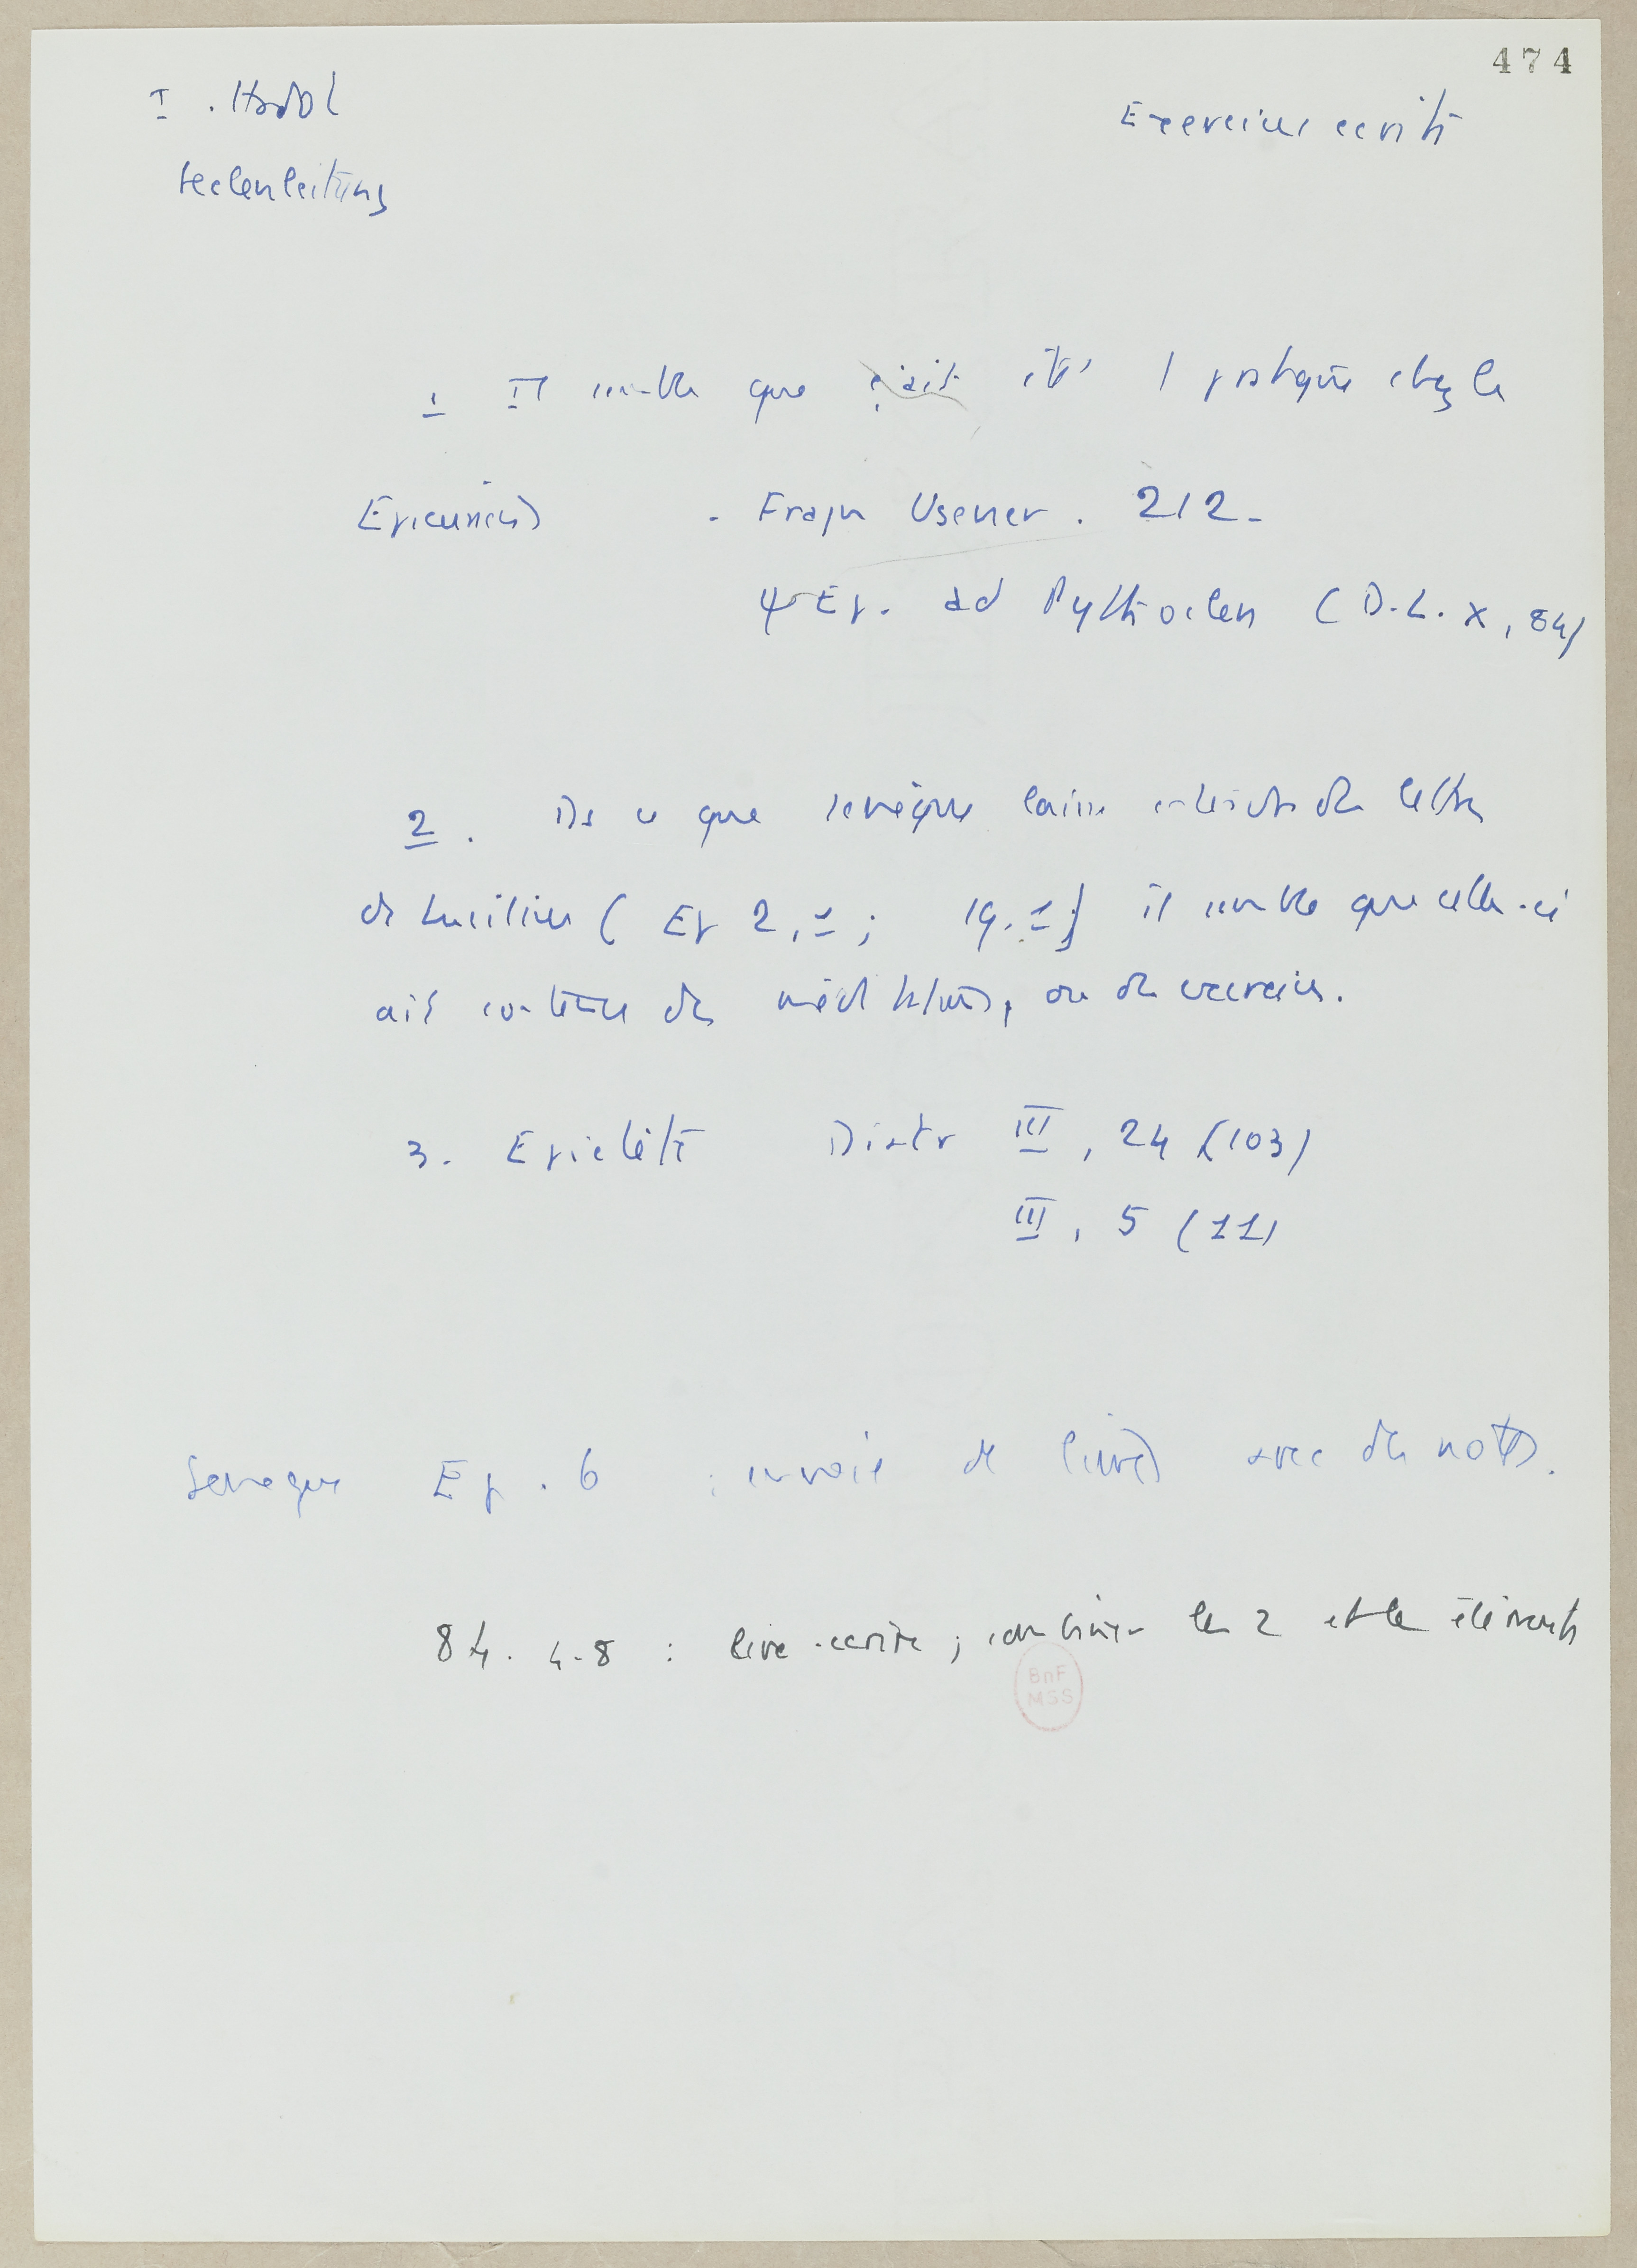 474
I. Hadot
Seelenleitung
Exercices écrits
1 Il semble que ç'ait été 1 pratique chez les
Epicuriens - Fragm Usener. 212-
Ep. ad Pythoclen (D.L. X, 84)
2. Ds ce que Sénèque laisse entendre des lettres
de Lucilius ( Ep 2,1; 19.1) il semble que celles-ci
ait contenu des méditations, ou des exercices.
3. Epictète Diatr III, 24 (103)
III, 5 (11)
Seneque Ep. 6 : envoie de livres avec des notes.
84. 4-8 : lire-écrire ; combiner les 2 et les éléments
BnF
MSS